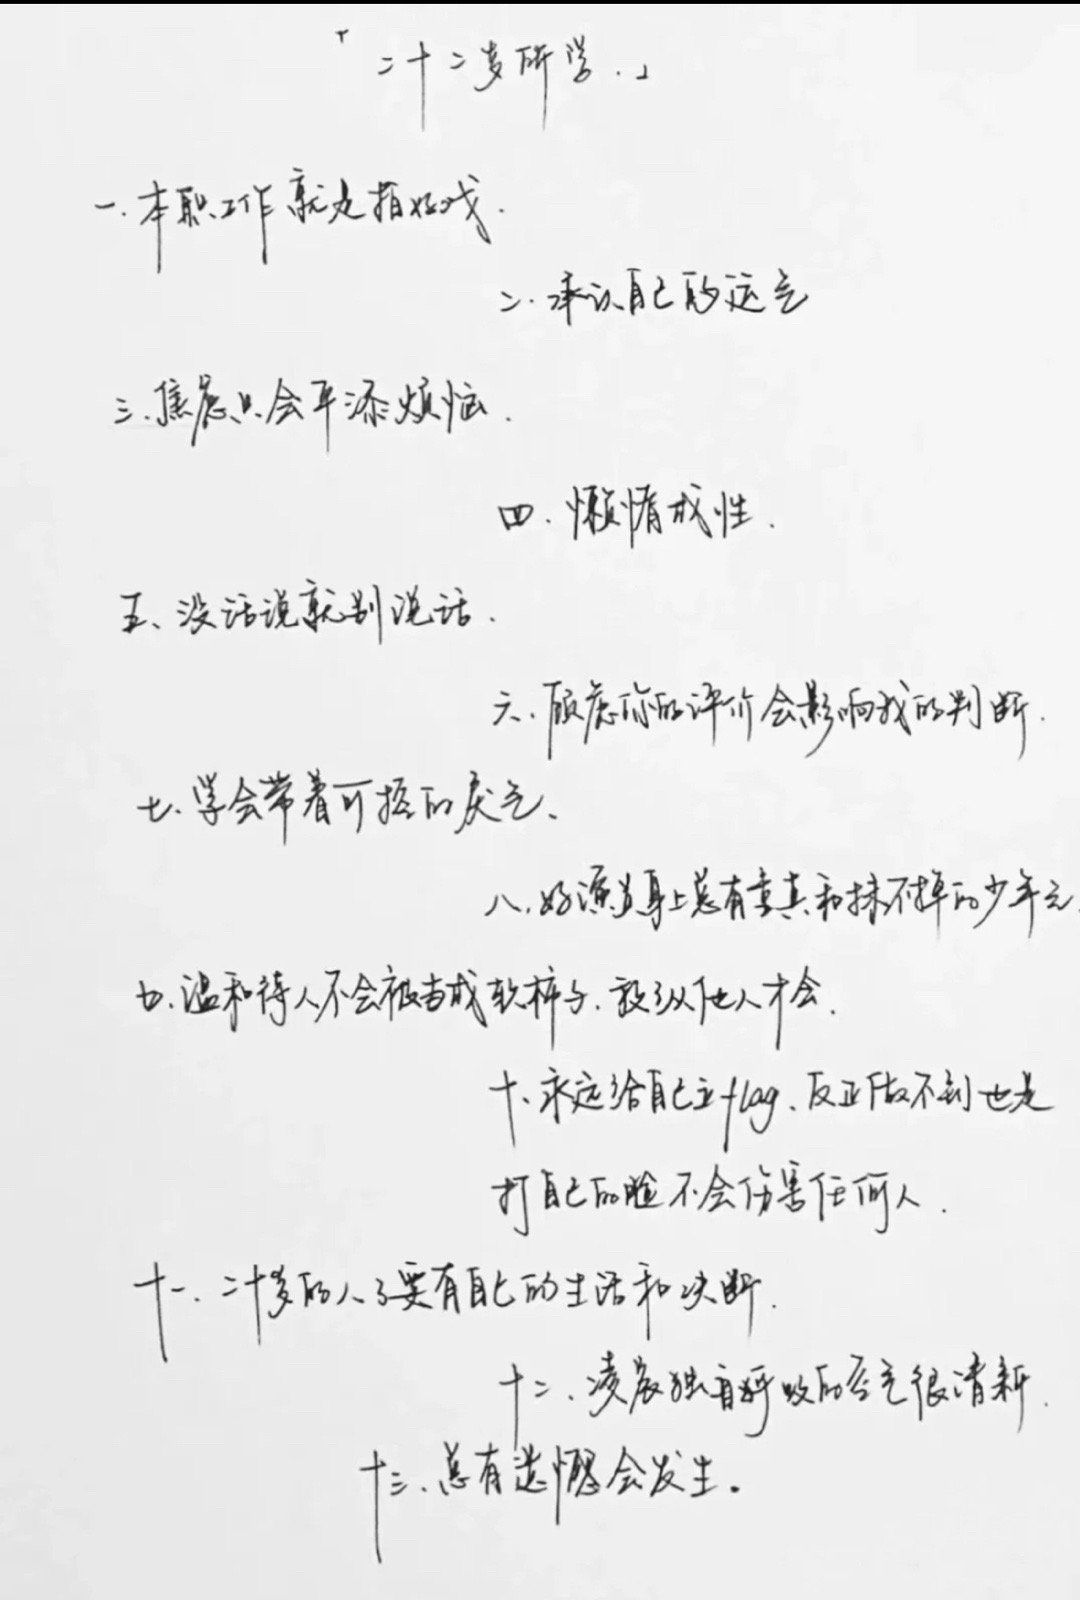 「二十二岁所学.」
一.本职工作就是拍好戏.
二.承认自己的运气
三.焦虑只会平添烦恼.
四.懒惰成性.
五、没话说就别说话.
六.顾虑你的评价会影响我的判断.
七.学会带着可控的戾气、
八.好演员身上总有童真和抹不掉的少年气.
九.温和待人不会被当成软柿子.放纵他人才会.
十、永远给自己立flag、反正做不到也是
打自己的脸不会伤害任何人.
十一.二十岁的人了要有自己的生活和决断.
十二、凌晨独自呼吸的空气很清新.
十三、总有遗憾会发生。